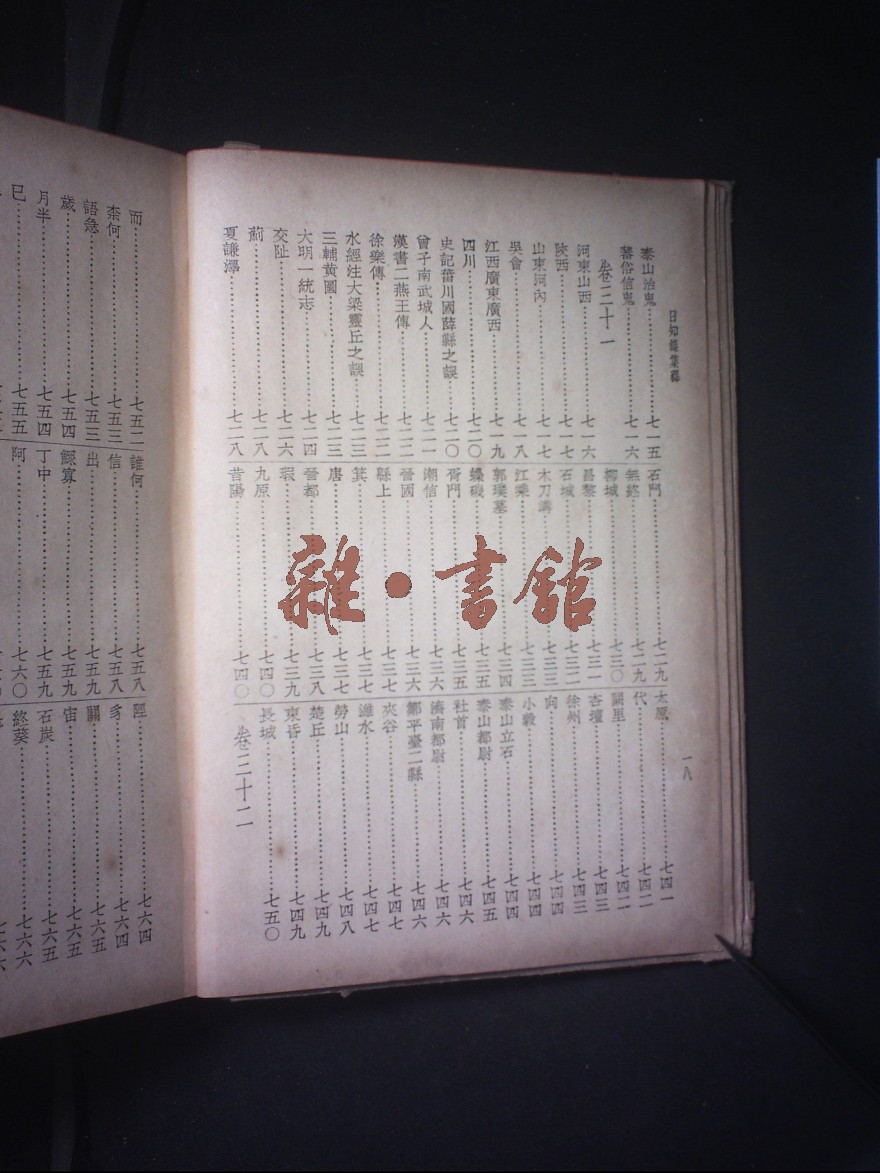 日知錄集釋
一八
泰山治鬼……七一五
蕃俗信鬼……七一六
卷三十一
河東山西……七一六
陝西……七一七
山東河內……七一七
吳會……七一八
江西廣東廣西……七一九
四川……七二〇
史記菑川國薛縣之誤……七二〇
曾子南武城人……七二一
漢書二燕王傳……七二二
徐樂傳……七二二
水經注大梁靈丘之誤……七二三
三輔黃圖……七二三
大明一統志……七二四
交阯……七二六
薊……七二八
夏謙澤……七二八
石門……七二九
無終……七二九
柳城……七三〇
昌黎……七三一
石城……七三二
木刀溝……七三三
江乘……七三三
郭璞墓……七三四
蟂磯……七三五
胥門……七三五
潮信……七三六
晉國……七三六
緜上……七三七
箕……七三七
唐……七三七
晉都……七三八
瑕……七三九
九原……七四〇
昔陽……七四〇
太原……七四一
代……七四二
闕里……七四二
杏壇……七四三
徐州……七四三
向……七四四
小穀……七四四
泰山立石……七四四
泰山都尉……七四五
社首……七四六
濟南都尉……七四六
鄒平臺二縣……七四六
夾谷……七四七
濰水……七四七
勞山……七四八
楚丘……七四九
東昏……七四九
長城……七五〇
卷三十二
而……七五二
柰何……七五三
語急……七五三
歲……七五四
月半……七五四
巳……七五五
誰何……七五八
信……七五八
出……七五九
鰥寡……七五九
丁中……七五九
阿……七六〇
陘……七六四
豸……七六四
關……七六五
宙……七六五
石炭……七六五
終葵……七六六
雜·書館